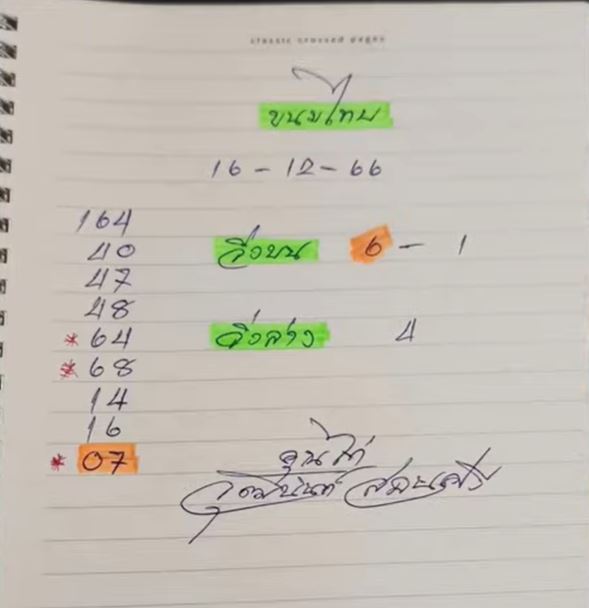 classic crossed pages
ขนมไทย
16 - 12 - 66
164
40
วิ่งบน 6 - 1
47
48
* 64
วิ่งล่าง 4
* 68
14
16
* 07